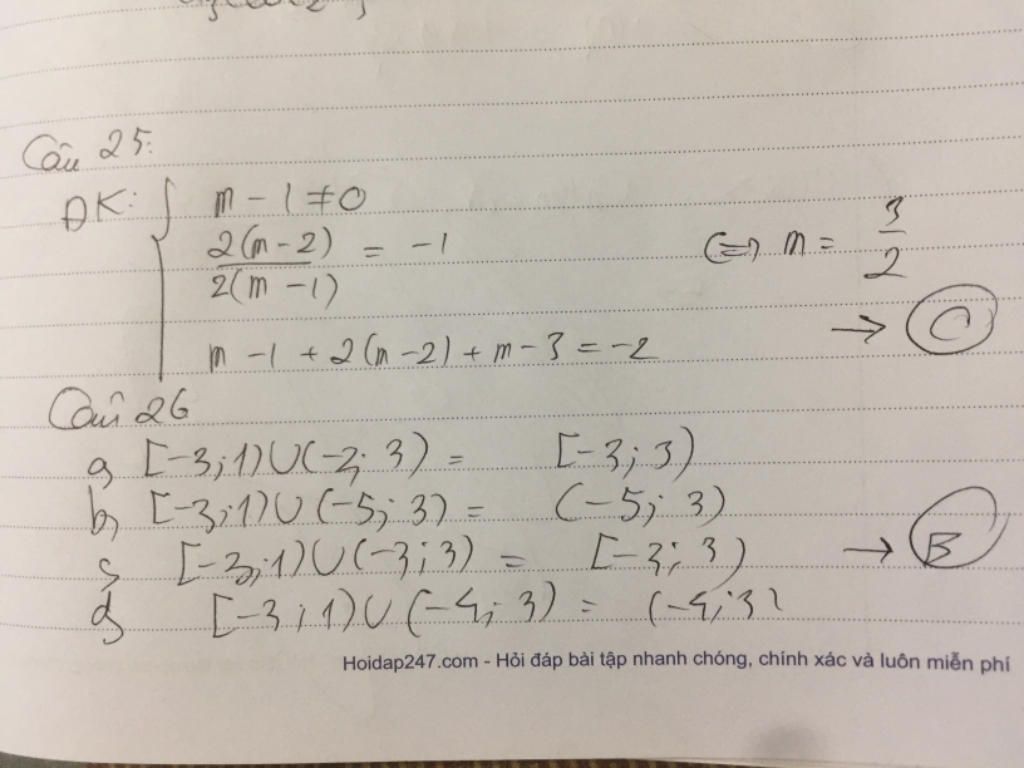 Câu 25:
ĐK: { m - 1 ≠ 0
2(m-2) / 2(m-1) = -1 <=> m = 3/2
m - 1 + 2(m-2) + m - 3 = -2 → C
Câu 26
a, [-3;1)∪(-2; 3) = [-3; 3)
b, [-3;1)∪(-5; 3) = (-5; 3)
c, [-3;1)∪(-3;3) = [-3; 3) → B
d, [-3;1)∪(-4; 3) = (-4;3)
Hoidap247.com - Hỏi đáp bài tập nhanh chóng, chính xác và luôn miễn phí